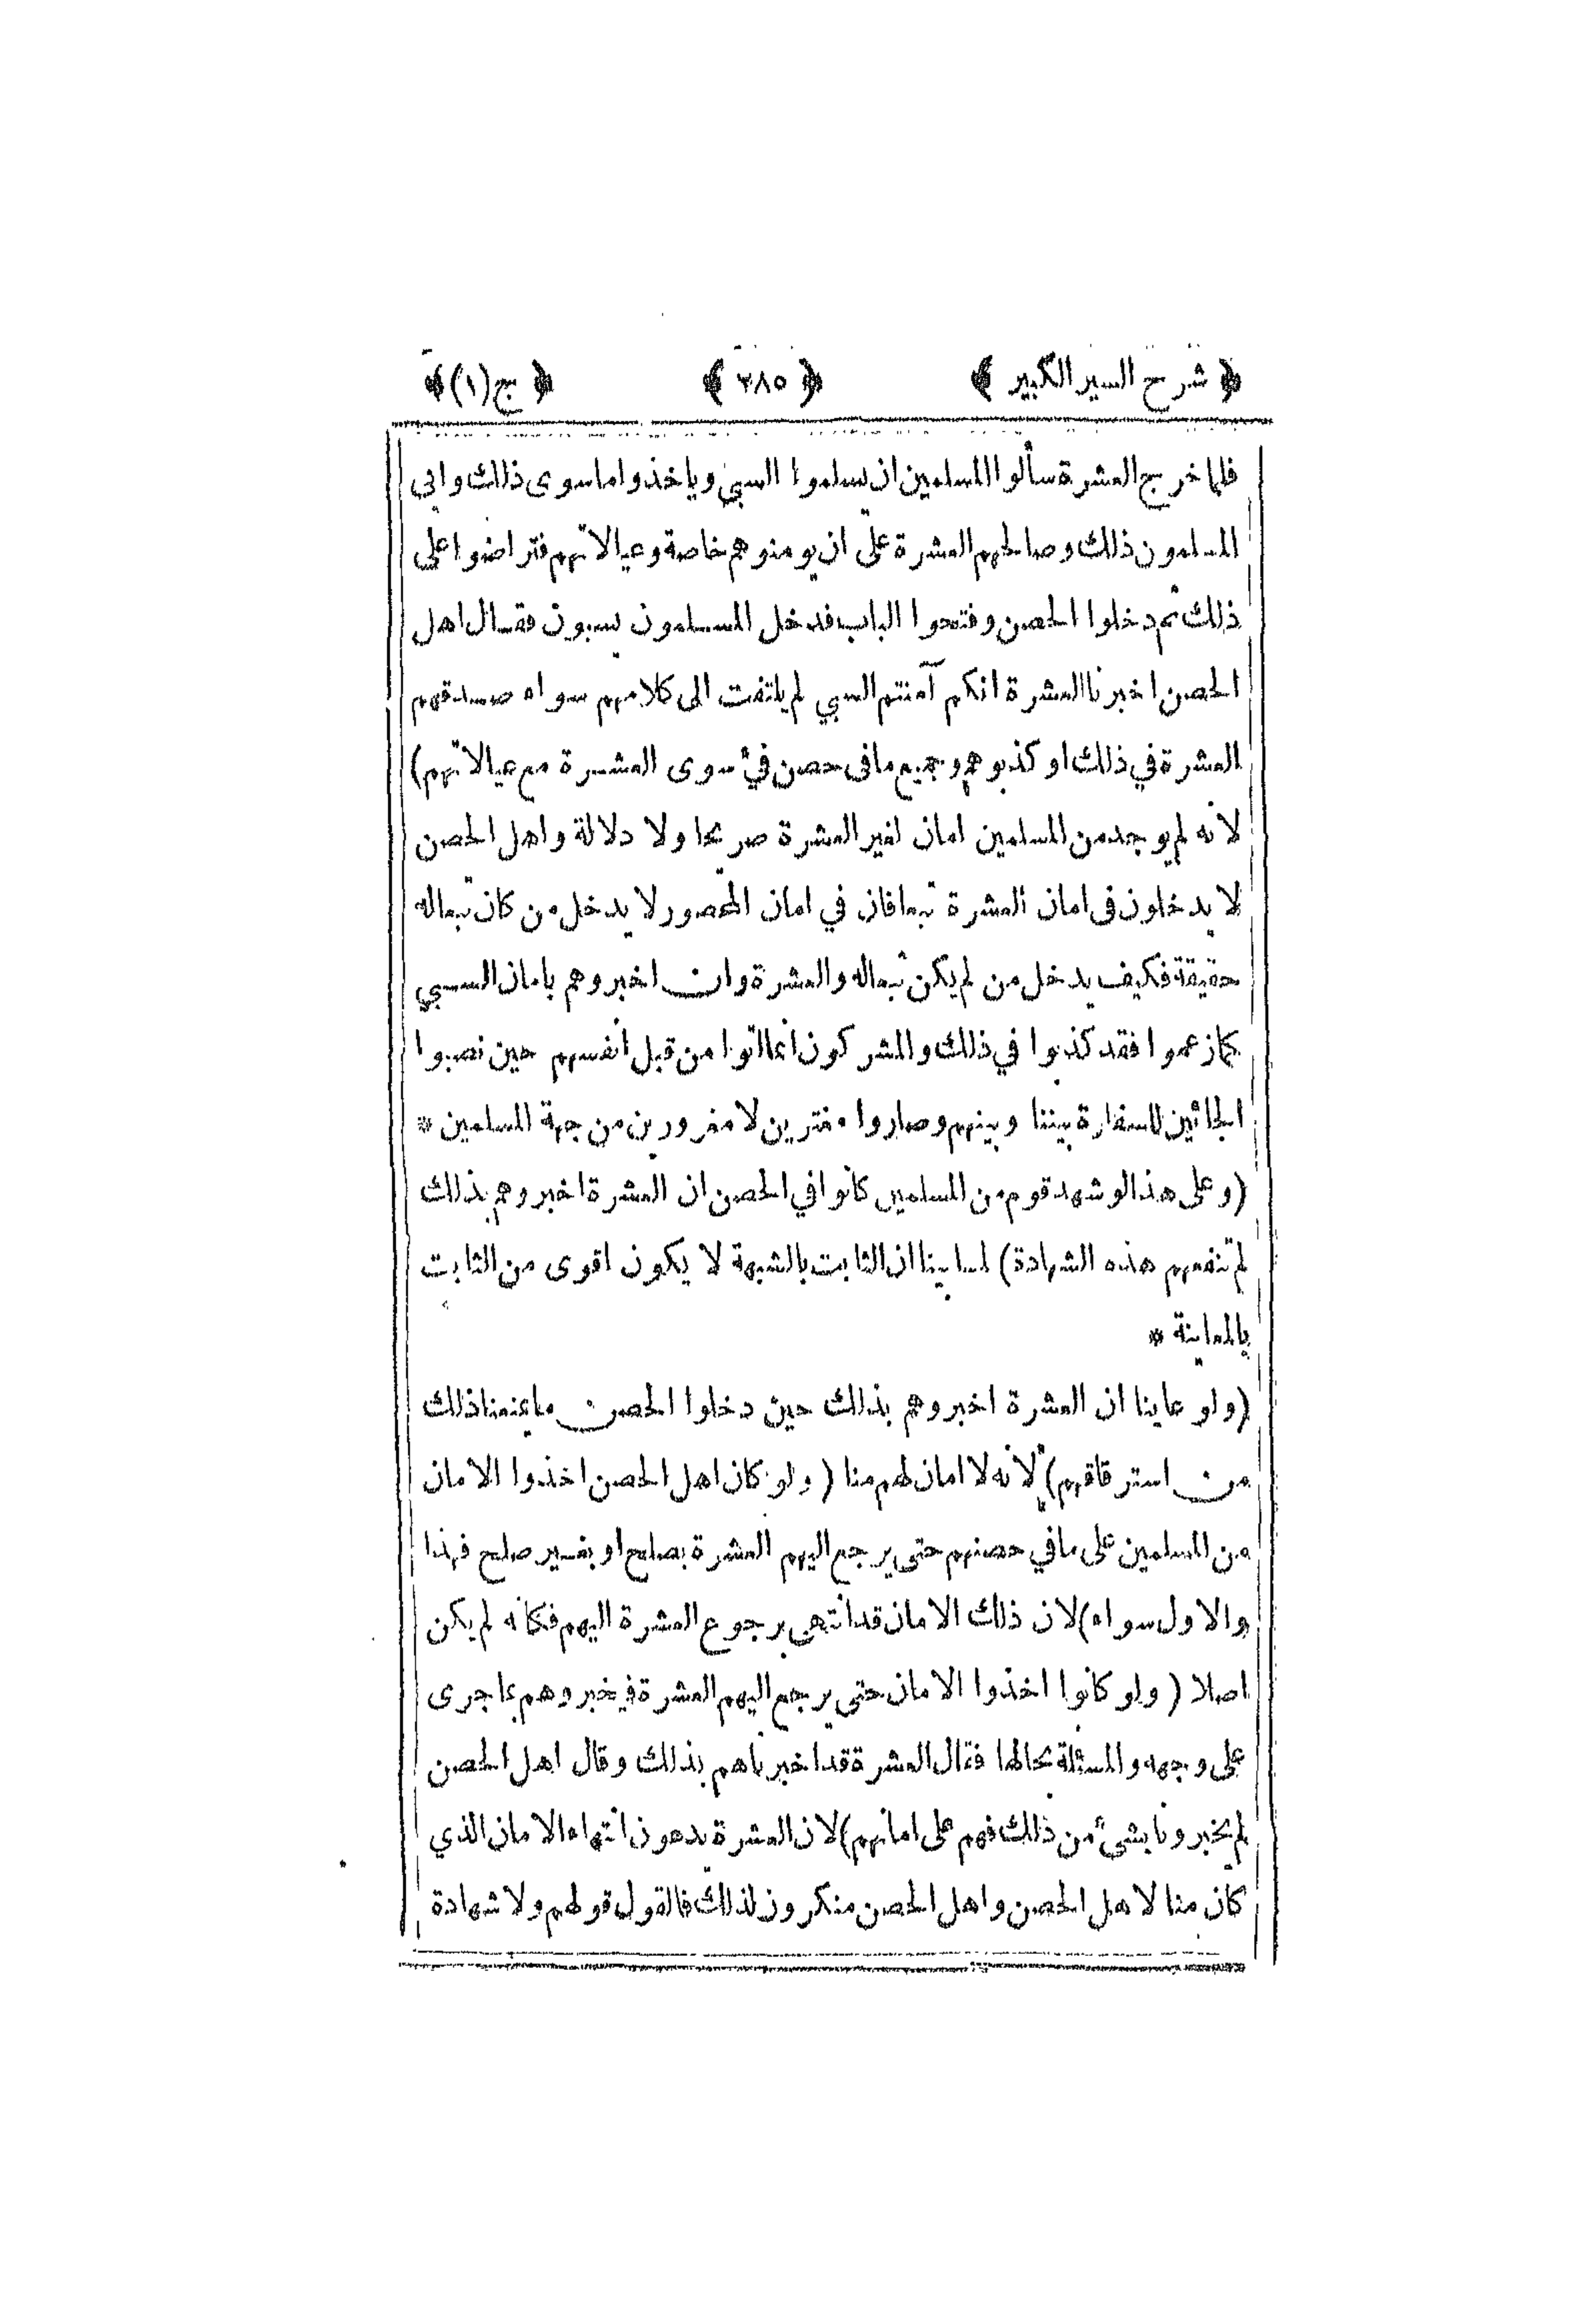 ﴿ شرح السير الكبير ﴾ ﴿ ٢٨٥ ﴾ ﴿ ج (١) ﴾
فلما خرج العشرة سألوا المسلمين ان يسلموا السبي وياخذوا ما سوى ذلك وابى
المسلمون ذلك وصالحهم العشرة على ان يومنوهم خاصة وعيالاتهم فتراضوا على
ذلك ثم دخلوا الحصن وفتحوا الباب فدخل المسلمون يسبون فقال اهل
الحصن اخبرنا العشرة انكم آمنتم السبي لم يلتفت الى كلامهم سواء صدقهم
العشرة في ذلك او كذبوهم وجميع مافى حصن فيئ سوى العشرة مع عيالاتهم)
لانه لم يوجد من المسلمين امان لغير العشرة صريحا ولا دلالة واهل الحصن
لا يدخلون فى امان العشرة تبعا فان في امان المحصور لا يدخل من كان تبعا له
حقيقة فكيف يدخل من لم يكن تبعا له والعشرة وان اخبروهم بامان السبي
كما زعموا فقد كذبوا في ذلك والمشركون انما اتوا من قبل انفسهم حين نصبوا
الجائين للسفارة بيننا وبينهم وصاروا مغترين لا مغرورين من جهة المسلمين *
(وعلى هذا لو شهد قوم من المسلمين كانوا في الحصن ان العشرة اخبروهم بذلك
لم تنفعهم هذه الشهادة) لما بينا ان الثابت بالشبهة لا يكون اقوى من الثابت
بالمعاينة *
(ولو عاينا ان العشرة اخبروهم بذلك حين دخلوا الحصن ما يمنعنا ذلك
من استرقاقهم) لانه لا امان لهم منا (ولو كان اهل الحصن اخذوا الامان
من المسلمين على مافي حصنهم حتى يرجع اليهم العشرة بصلح او بغير صلح فهذا
والاول سواء) لان ذلك الامان قد انتهى برجوع العشرة اليهم فكانه لم يكن
اصلا (ولو كانوا اخذوا الامان حتى يرجع اليهم العشرة فيخبروهم بما جرى
على وجهه والمسئلة بحالها فقال العشرة قد اخبرناهم بذلك وقال اهل الحصن
لم يخبرونا بشيئ من ذلك فهم على امانهم) لان العشرة يدعون انتهاء الامان الذي
كان منا لاهل الحصن واهل الحصن منكرون لذلك فالقول قولهم ولا شهادة